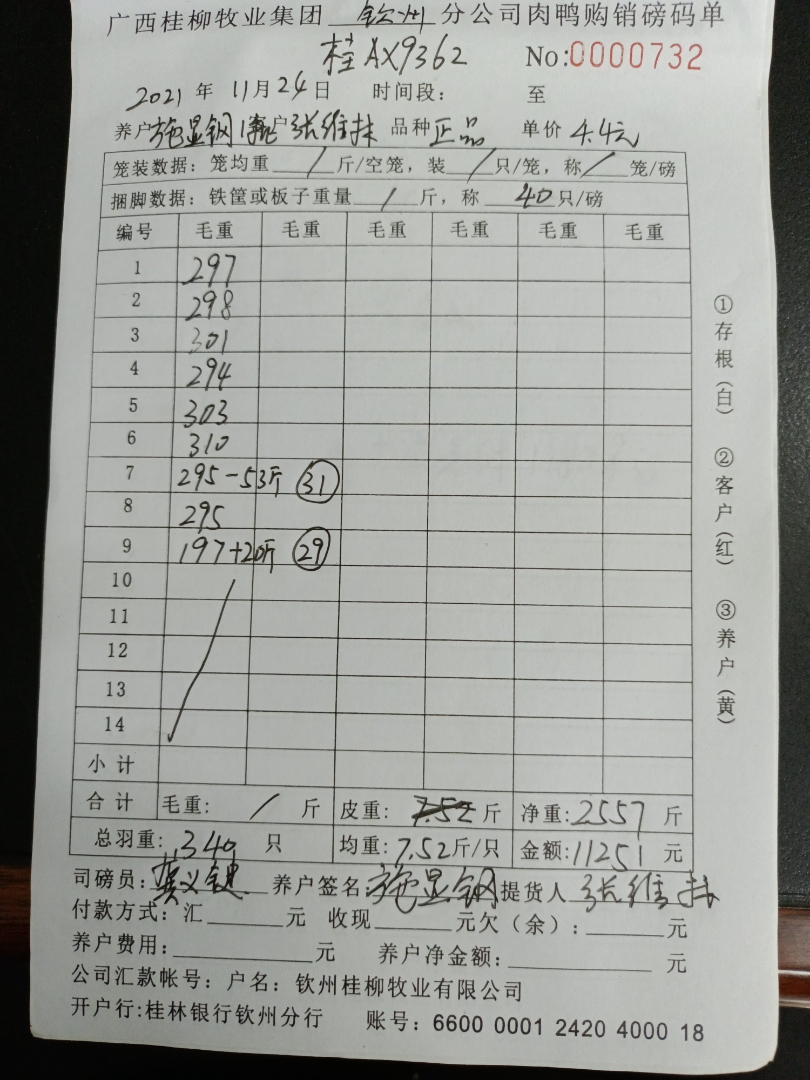 广西桂柳牧业集团 钦州 分公司肉鸭购销磅码单
桂AX9362 No:0000732
2021 年 11月24日 时间段: 至
养户 施显钢 客户 张维扶 品种 正品 单价 4.4元
笼装数据: 笼均重 / 斤/空笼, 装 / 只/笼, 称 / 笼/磅
捆脚数据: 铁筐或板子重量 / 斤, 称 40 只/磅
编号 毛重 毛重 毛重 毛重 毛重 毛重
1 297
2 298
3 301
4 294
5 303
6 310
7 295-53斤 31
8 295
9 197+20斤 29
10
11
12
13
14
小计
合计 毛重: / 斤 皮重: 7.52 斤 净重: 2557 斤
总羽重: 340 只 均重: 7.52斤/只 金额: 11251 元
司磅员: 养户签名: 施显钢 提货人 张维扶
付款方式: 汇 元 收现 元欠(余): 元
养户费用: 元 养户净金额: 元
公司汇款帐号: 户名: 钦州桂柳牧业有限公司
开户行:桂林银行钦州分行 账号: 6600 0001 2420 4000 18
①存根(白) ②客户(红) ③养户(黄)